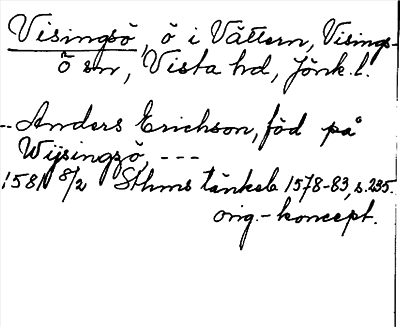 Visingsö, ö i Vättern, Visings-
ö sn, Vista hd, Jönk. l.
-- Anders Erichson, föd på
Wijsingzö, ---
1581 8/2 Sthms tänkeb. 1578-83, s. 235.
orig.-koncept.